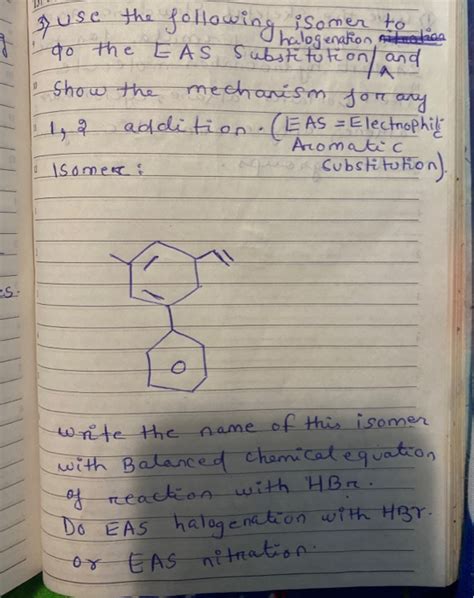 3) use the following isomer to
halogenation nitration
do the EAS Substitution/ and
Show the mechanism for any
1, 2 addition. (EAS = Electrophilic
Aromatic
Substitution).
Isomer :
write the name of this isomer
with Balanced chemical equation
of reaction with HBr.
Do EAS halogenation with HBr.
or EAS nitration.